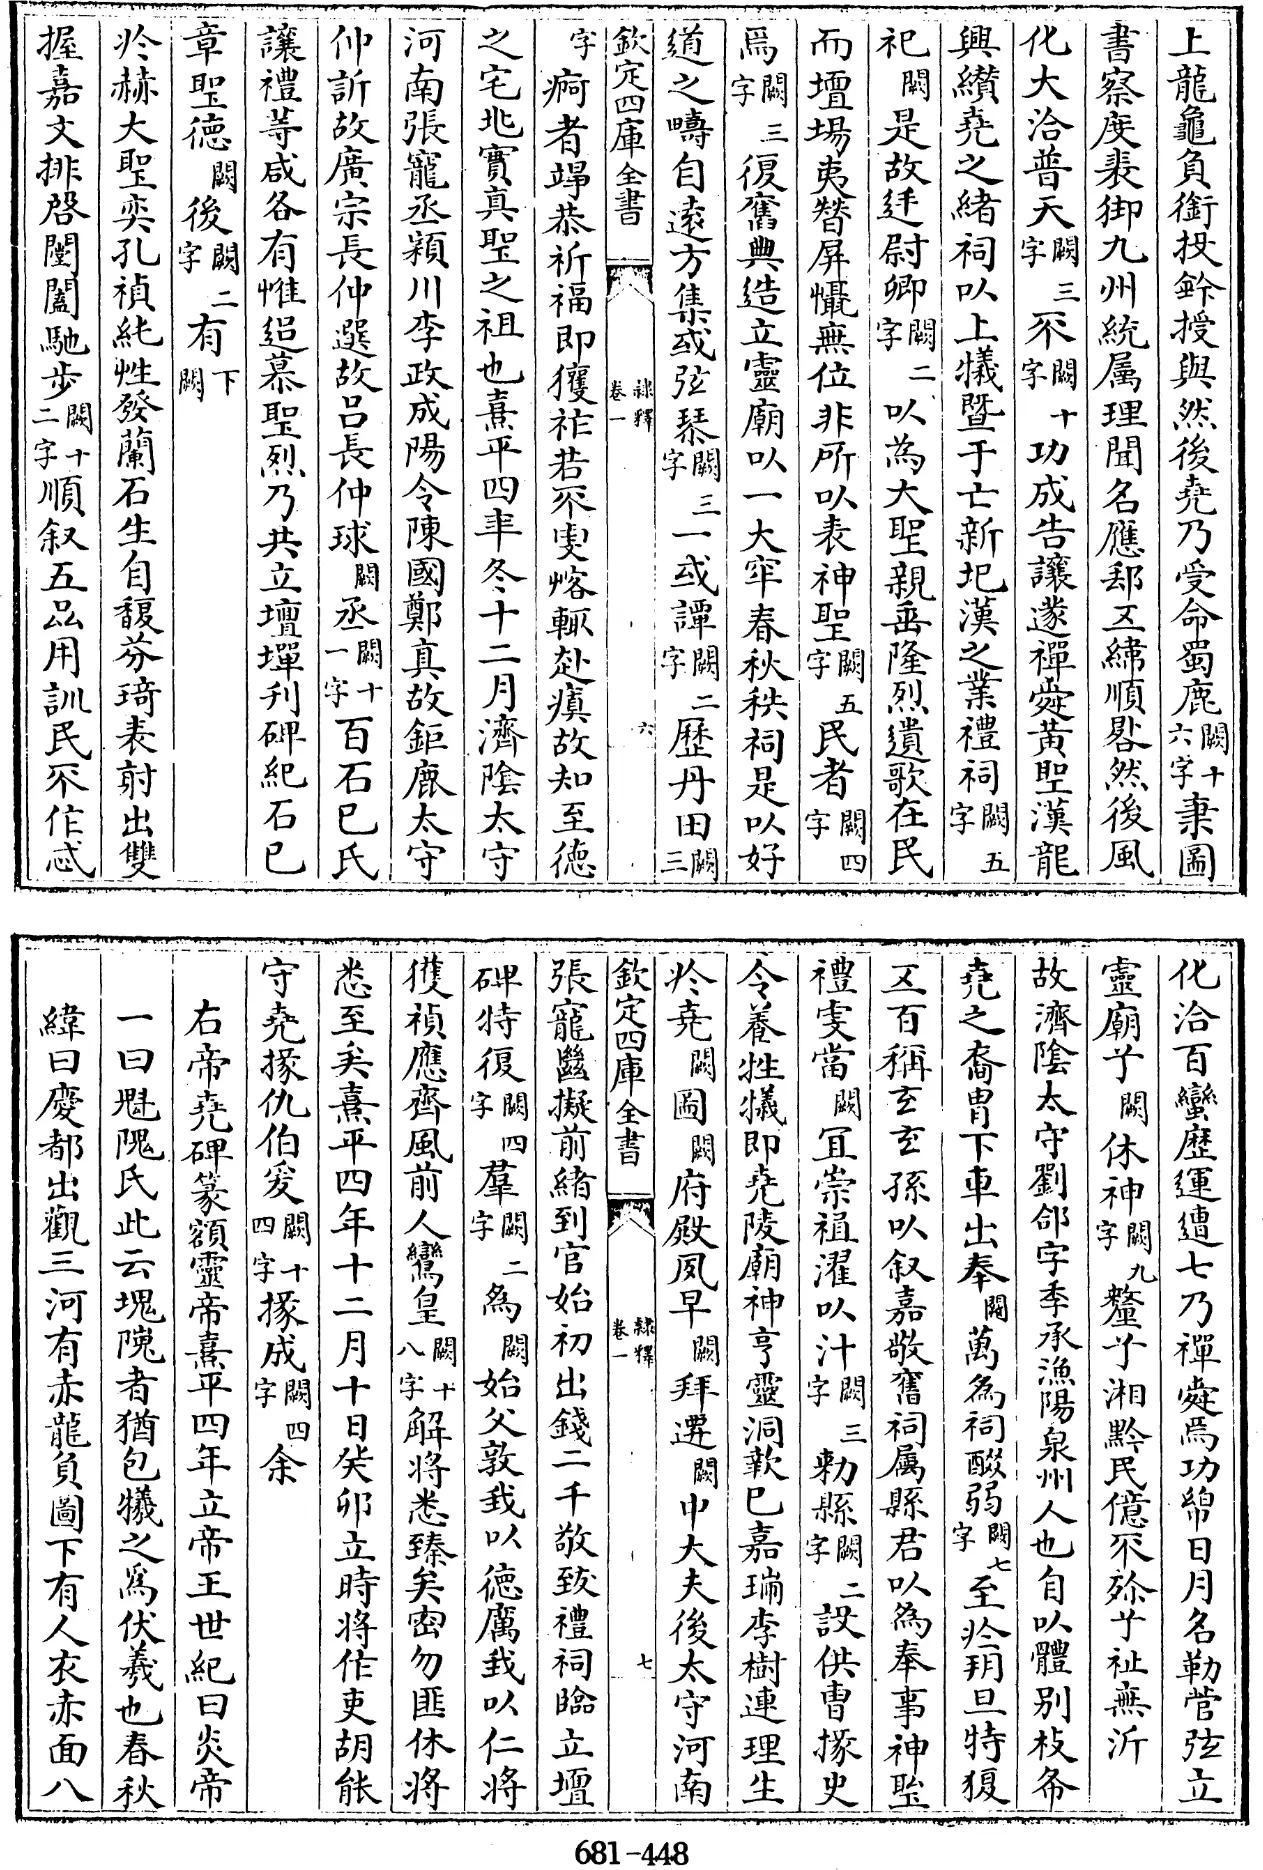 上龍龜負銜投鈐授與然後堯乃受命蜀鹿闕十六字秉圖
書察度表御九州統属理聞名應郄五緯順晷然後風
化大洽普天闕三字不闕十字功成告讓遂禪舜黃聖漢龍
興纘堯之緒祠以上犧暨于亡新圯漢之業禮祠闕五字
祀闕是故廷尉卿闕二字以為大聖親垂隆烈遺歌在民
而壇場夷替屏懾無位非所以表神聖闕五字民者闕四字
焉闕三字復舊典造立靈廟以一大牢春秋秩祠是以好
道之疇自遠方集或弦琴闕三字一或譚闕二字歷丹田闕三
欽定四庫全書 隸釋 卷一 六
字痾者竭恭祈福即獲祚若不虔愘輒赴瘨故知至德
之宅兆實真聖之祖也熹平四年冬十二月濟陰太守
河南張寵丞潁川李政成陽令陳國鄭真故鉅鹿太守
仲訢故廣宗長仲選故呂長仲球闕丞闕十一字百石巳氏
讓禮等咸各有惟追慕聖烈乃共立壇墠刋碑紀石巳
章聖德闕後闕二字有下闕
於赫大聖奕孔禎純性發蘭石生自馥芬琦表射出雙
握嘉文排啓閶闔馳步闕十二字順叙五品用訓民不作忒
化洽百蠻歷運遭七乃禪舜焉功綿日月名勒管弦立
靈廟兮闕休神闕九字釐兮湘黔民億不殄兮祉無沂
故濟陰太守劉郃字季承漁陽泉州人也自以體別枝布
堯之裔胄下車出奉闕萬為祠醊弱闕七字至於玥旦特猳
五百稱玄玄孫以叙嘉敬舊祠属縣君以為奉事神聖
禮虔當闕宜崇禃濯以汁闕三字勑縣闕二字設供曹掾史
令養牲犧即堯陵廟神亨靈洞歆巳嘉瑞李樹連理生
於堯闕圖闕府殿夙早闕拜遷闕中大夫後太守河南
欽定四庫全書 隸釋 卷一 七
張寵㡭擬前緒到官始初出錢二千敬致禮祠臨立壇
碑特復闕四字羣闕二字為闕始父敦我以德厲我以仁將
獲禎應齊風前人鸞皇闕十八字解將悉臻矣密勿匪休將
悉至矣熹平四年十二月十日癸卯立時將作吏胡能
守堯掾仇伯爰闕十四字掾成闕四字余
右帝堯碑篆額靈帝熹平四年立帝王世紀曰炎帝
一曰魁隗氏此云塊隗者猶包犧之為伏羲也春秋
緯曰慶都出觀三河有赤龍負圖下有人衣赤面八
681-448